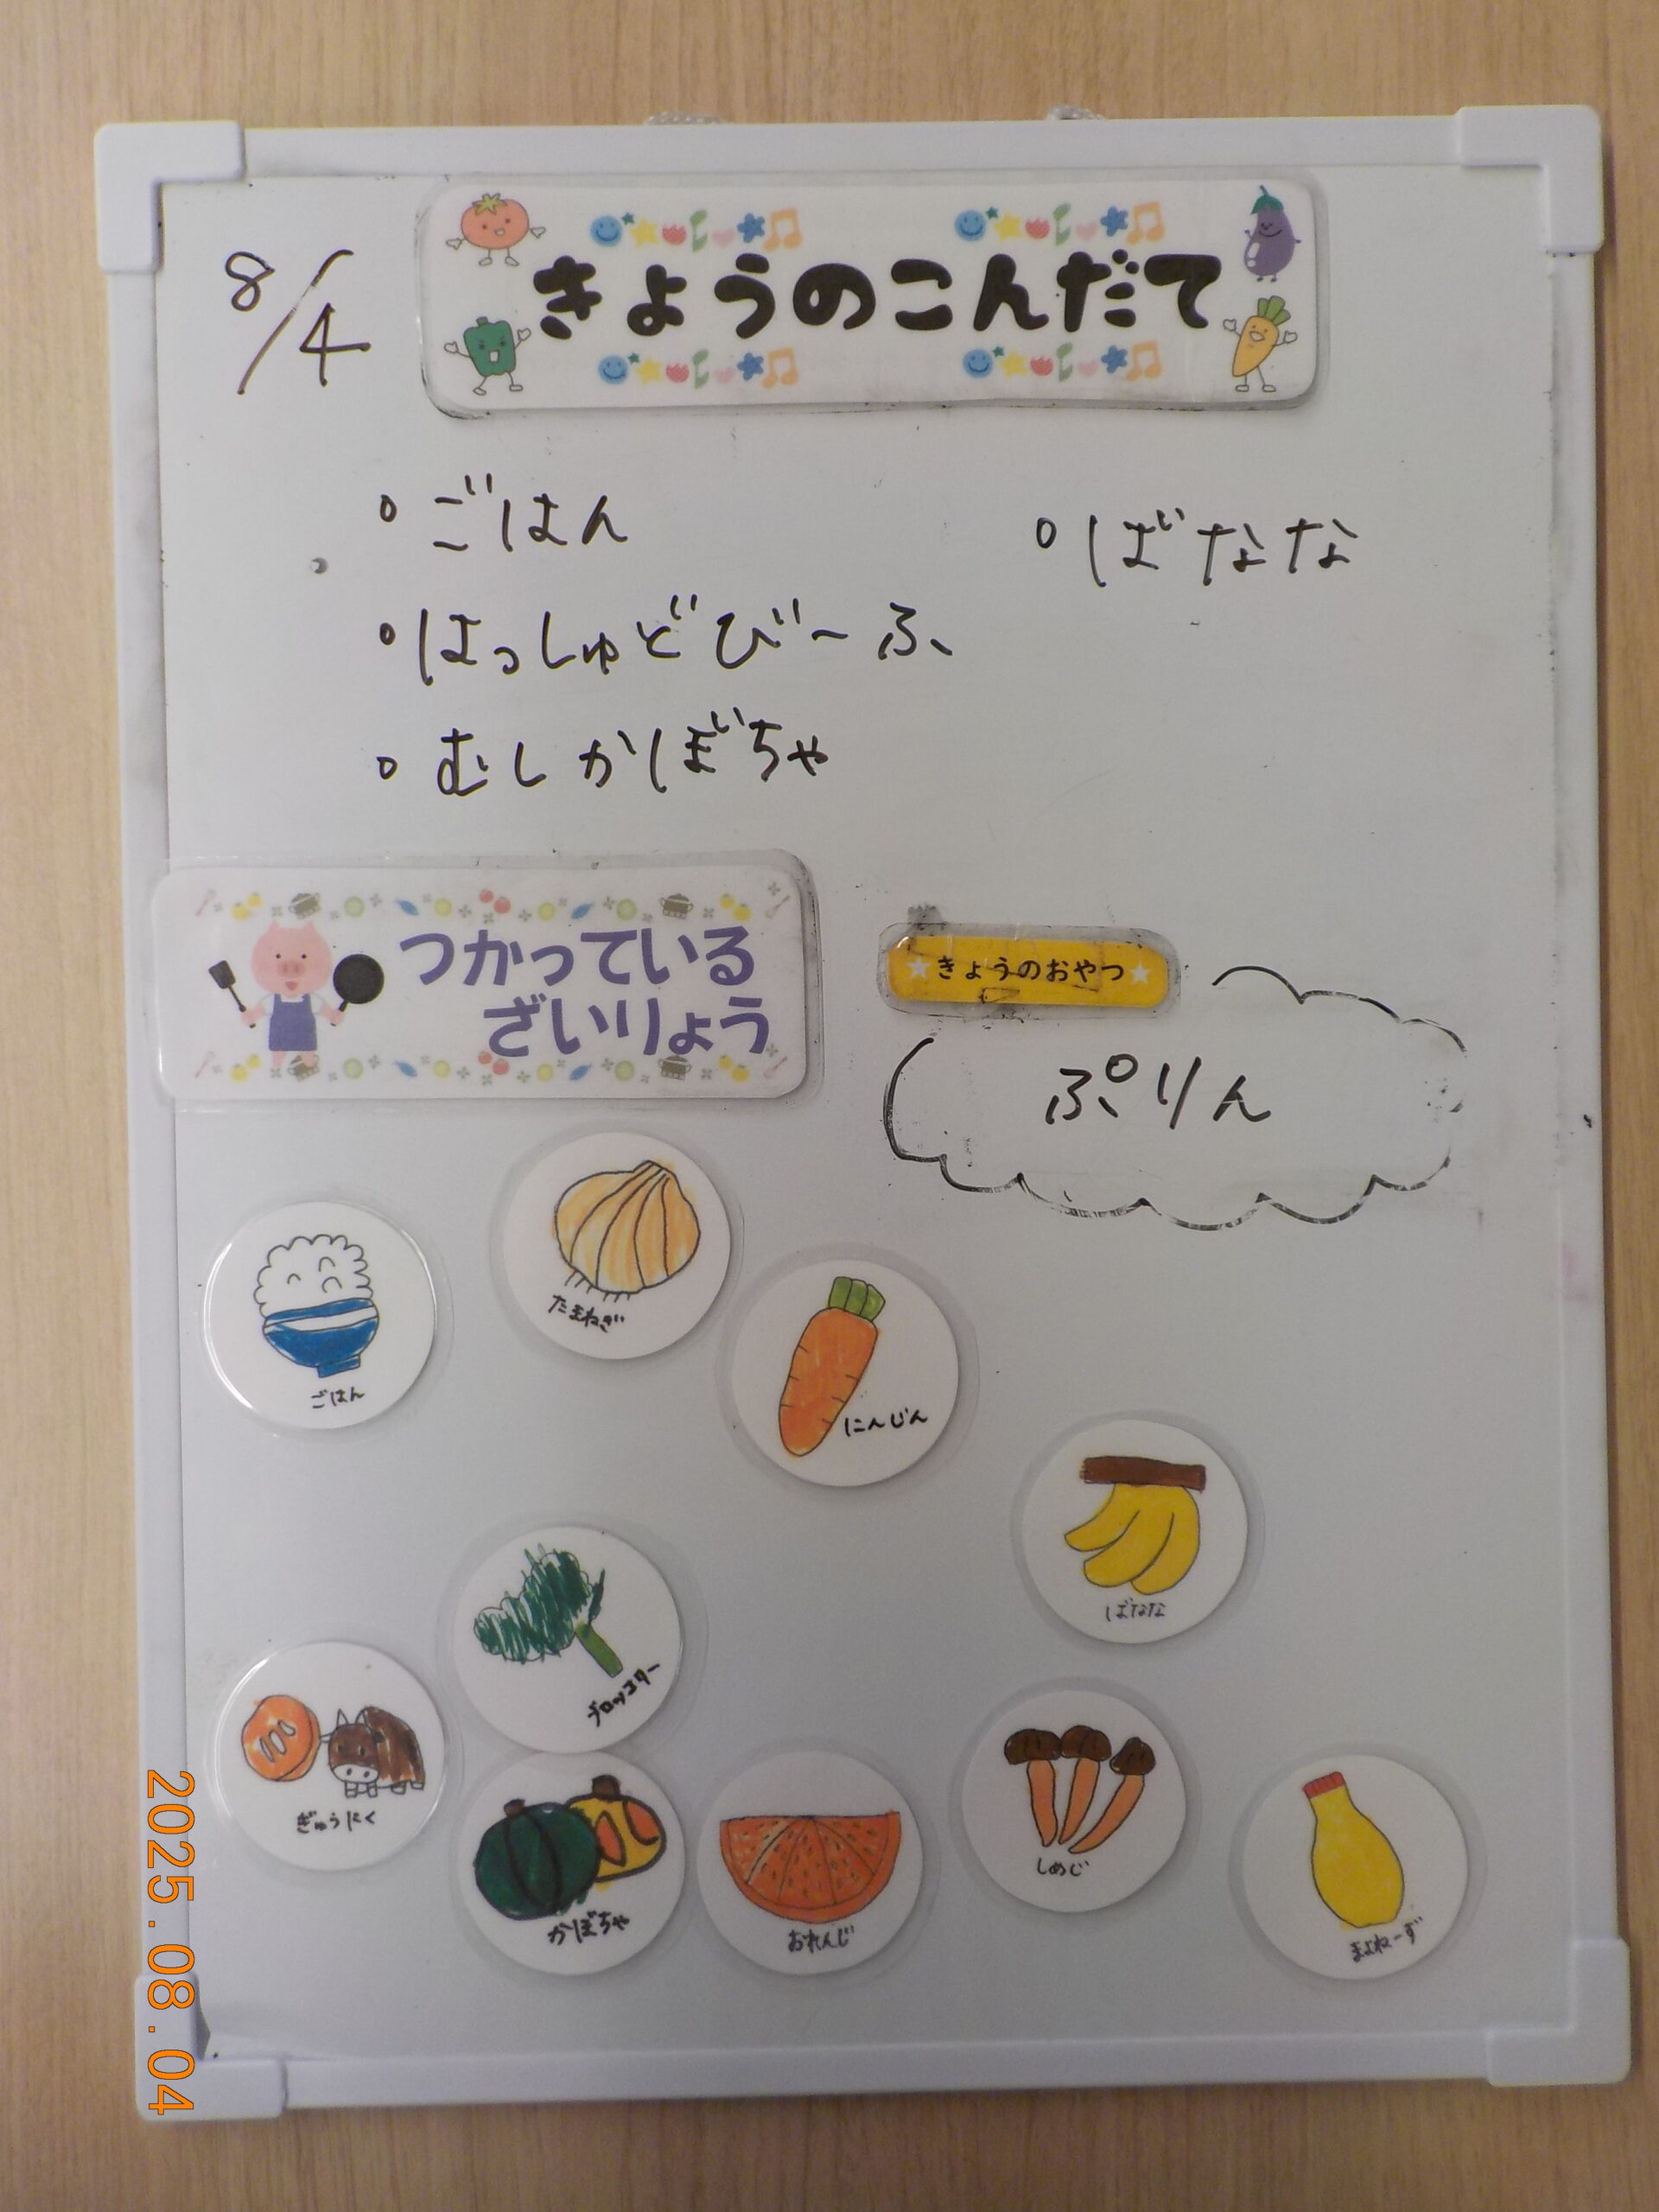 8/4
きょうのこんだて
・ごはん
・はっしゅどびーふ
・むしかぼちゃ
・ばなな
つかっている
ざいりょう
★きょうのおやつ★
ぷりん
ごはん
たまねぎ
にんじん
ばなな
ブロッコリー
ぎゅうにく
かぼちゃ
おれんじ
しめじ
まよねーず
2025.08.04